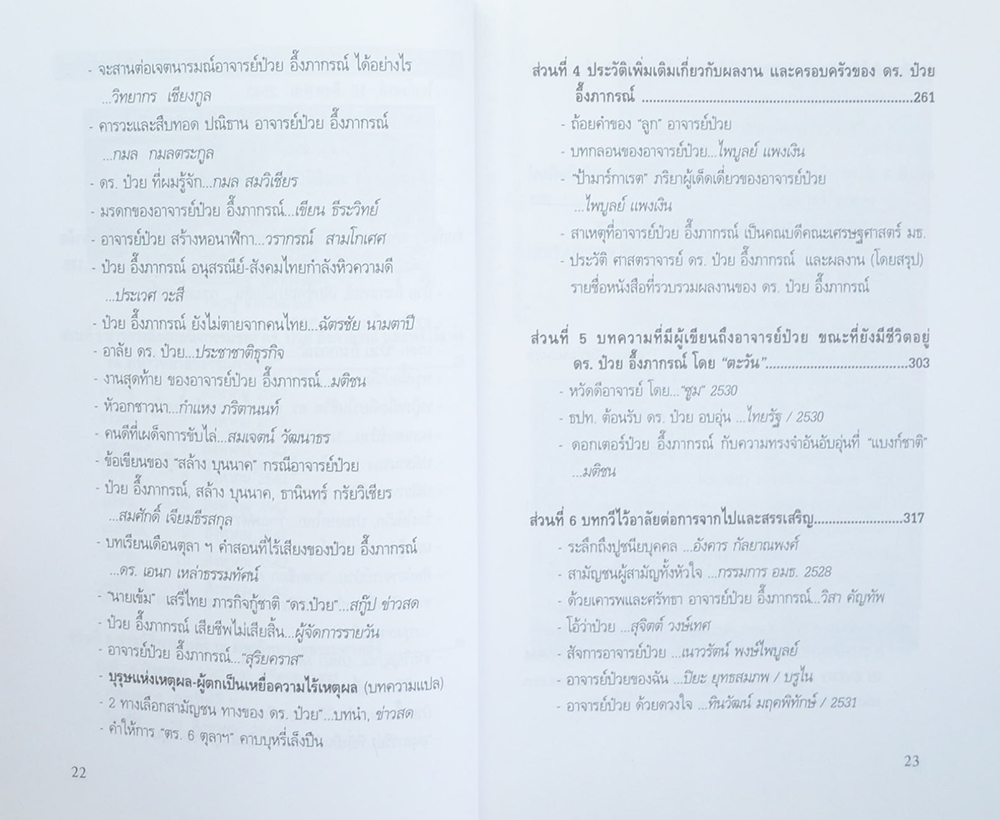 - จะสานต่อเจตนารมณ์อาจารย์ป๋วย อึ๊งภากรณ์ ได้อย่างไร
...วิทยากร เชียงกูล
- คารวะและสืบทอด ปณิธาน อาจารย์ป๋วย อึ๊งภากรณ์
...กมล กมลตระกูล
- ดร. ป๋วย ที่ผมรู้จัก...กมล สมวิเชียร
- มรดกของอาจารย์ป๋วย อึ๊งภากรณ์...เขียน ธีระวิทย์
- อาจารย์ป๋วย สร้างหอนาฬิกา...วรากรณ์ สามโกเศศ
- ป๋วย อึ๊งภากรณ์ อนุสรณีย์-สังคมไทยกำลังหิวความดี
...ประเวศ วะสี
- ป๋วย อึ๊งภากรณ์ ยังไม่ตายจากคนไทย...ฉัตรชัย นามตาปี
- อาลัย ดร. ป๋วย...ประชาชาติธุรกิจ
- งานสุดท้าย ของอาจารย์ป๋วย อึ๊งภากรณ์...มติชน
- หัวอกชาวนา...กำแหง ภริตานนท์
- คนดีที่เผด็จการขับไล่...สมเจตน์ วัฒนาธร
- ข้อเขียนของ "สล้าง บุนนาค" กรณีอาจารย์ป๋วย
- ป๋วย อึ๊งภากรณ์, สล้าง บุนนาค, ธานินทร์ กรัยวิเชียร
...สมศักดิ์ เจียมธีรสกุล
- บทเรียนเดือนตุลา ฯ คำสอนที่ไร้เสียงของป๋วย อึ๊งภากรณ์
...ดร. เอนก เหล่าธรรมทัศน์
- "นายเข้ม" เสรีไทย ภารกิจกู้ชาติ "ดร.ป๋วย"...สกู๊ป ข่าวสด
- ป๋วย อึ๊งภากรณ์ เสียชีพไม่เสียสิ้น...ผู้จัดการรายวัน
- อาจารย์ป๋วย อึ๊งภากรณ์..."สุริยคราส"
- บุรุษแห่งเหตุผล-ผู้ตกเป็นเหยื่อความไร้เหตุผล (บทความแปล)
- 2 ทางเลือกสามัญชน ทางของ ดร. ป๋วย"...บทนำ, ข่าวสด
- คำให้การ "ดร. 6 ตุลาฯ" คาบบุหรี่เล็งปืน
22
ส่วนที่ 4 ประวัติเพิ่มเติมเกี่ยวกับผลงาน และครอบครัวของ ดร. ป๋วย
อึ๊งภากรณ์ ......................................................................261
- ถ้อยคำของ "ลูก" อาจารย์ป๋วย
- บทกลอนของอาจารย์ป๋วย...ไพบูลย์ แพงเงิน
- "ป้ามาร์กาเรต" ภริยาผู้เด็ดเดี่ยวของอาจารย์ป๋วย
...ไพบูลย์ แพงเงิน
- สาเหตุที่อาจารย์ป๋วย อึ๊งภากรณ์ เป็นคณบดีคณะเศรษฐศาสตร์ มธ.
- ประวัติ ศาสตราจารย์ ดร. ป๋วย อึ๊งภากรณ์ และผลงาน (โดยสรุป)
รายชื่อหนังสือที่รวบรวมผลงานของ ดร. ป๋วย อึ๊งภากรณ์
ส่วนที่ 5 บทความที่มีผู้เขียนถึงอาจารย์ป๋วย ขณะที่ยังมีชีวิตอยู่
ดร. ป๋วย อึ๊งภากรณ์ โดย "ตะวัน"......................................303
- หวัดดีอาจารย์ โดย..."ซูม" 2530
- ธปท. ต้อนรับ ดร. ป๋วย อบอุ่น ...ไทยรัฐ / 2530
- ดอกเตอร์ป๋วย อึ๊งภากรณ์ กับความทรงจำอันอบอุ่นที่ "แบงก์ชาติ"
...มติชน
ส่วนที่ 6 บทกวีไว้อาลัยต่อการจากไปและสรรเสริญ........................317
- ระลึกถึงปูชนียบุคคล ...อังคาร กัลยาณพงศ์
- สามัญชนผู้สามัญทั้งหัวใจ ...กรรมการ อมธ. 2528
- ด้วยเคารพและศรัทธา อาจารย์ป๋วย อึ๊งภากรณ์...วิสา คัญทัพ
- โอ้ว่าป๋วย ...สุจิตต์ วงษ์เทศ
- สัจการอาจารย์ป๋วย ...เนาวรัตน์ พงษ์ไพบูลย์
- อาจารย์ป๋วยของฉัน ...ปิยะ ยุทธสมภพ / บรูไน
- อาจารย์ป๋วย ด้วยดวงใจ ...ทินวัฒน์ มฤคพิทักษ์ / 2531
23